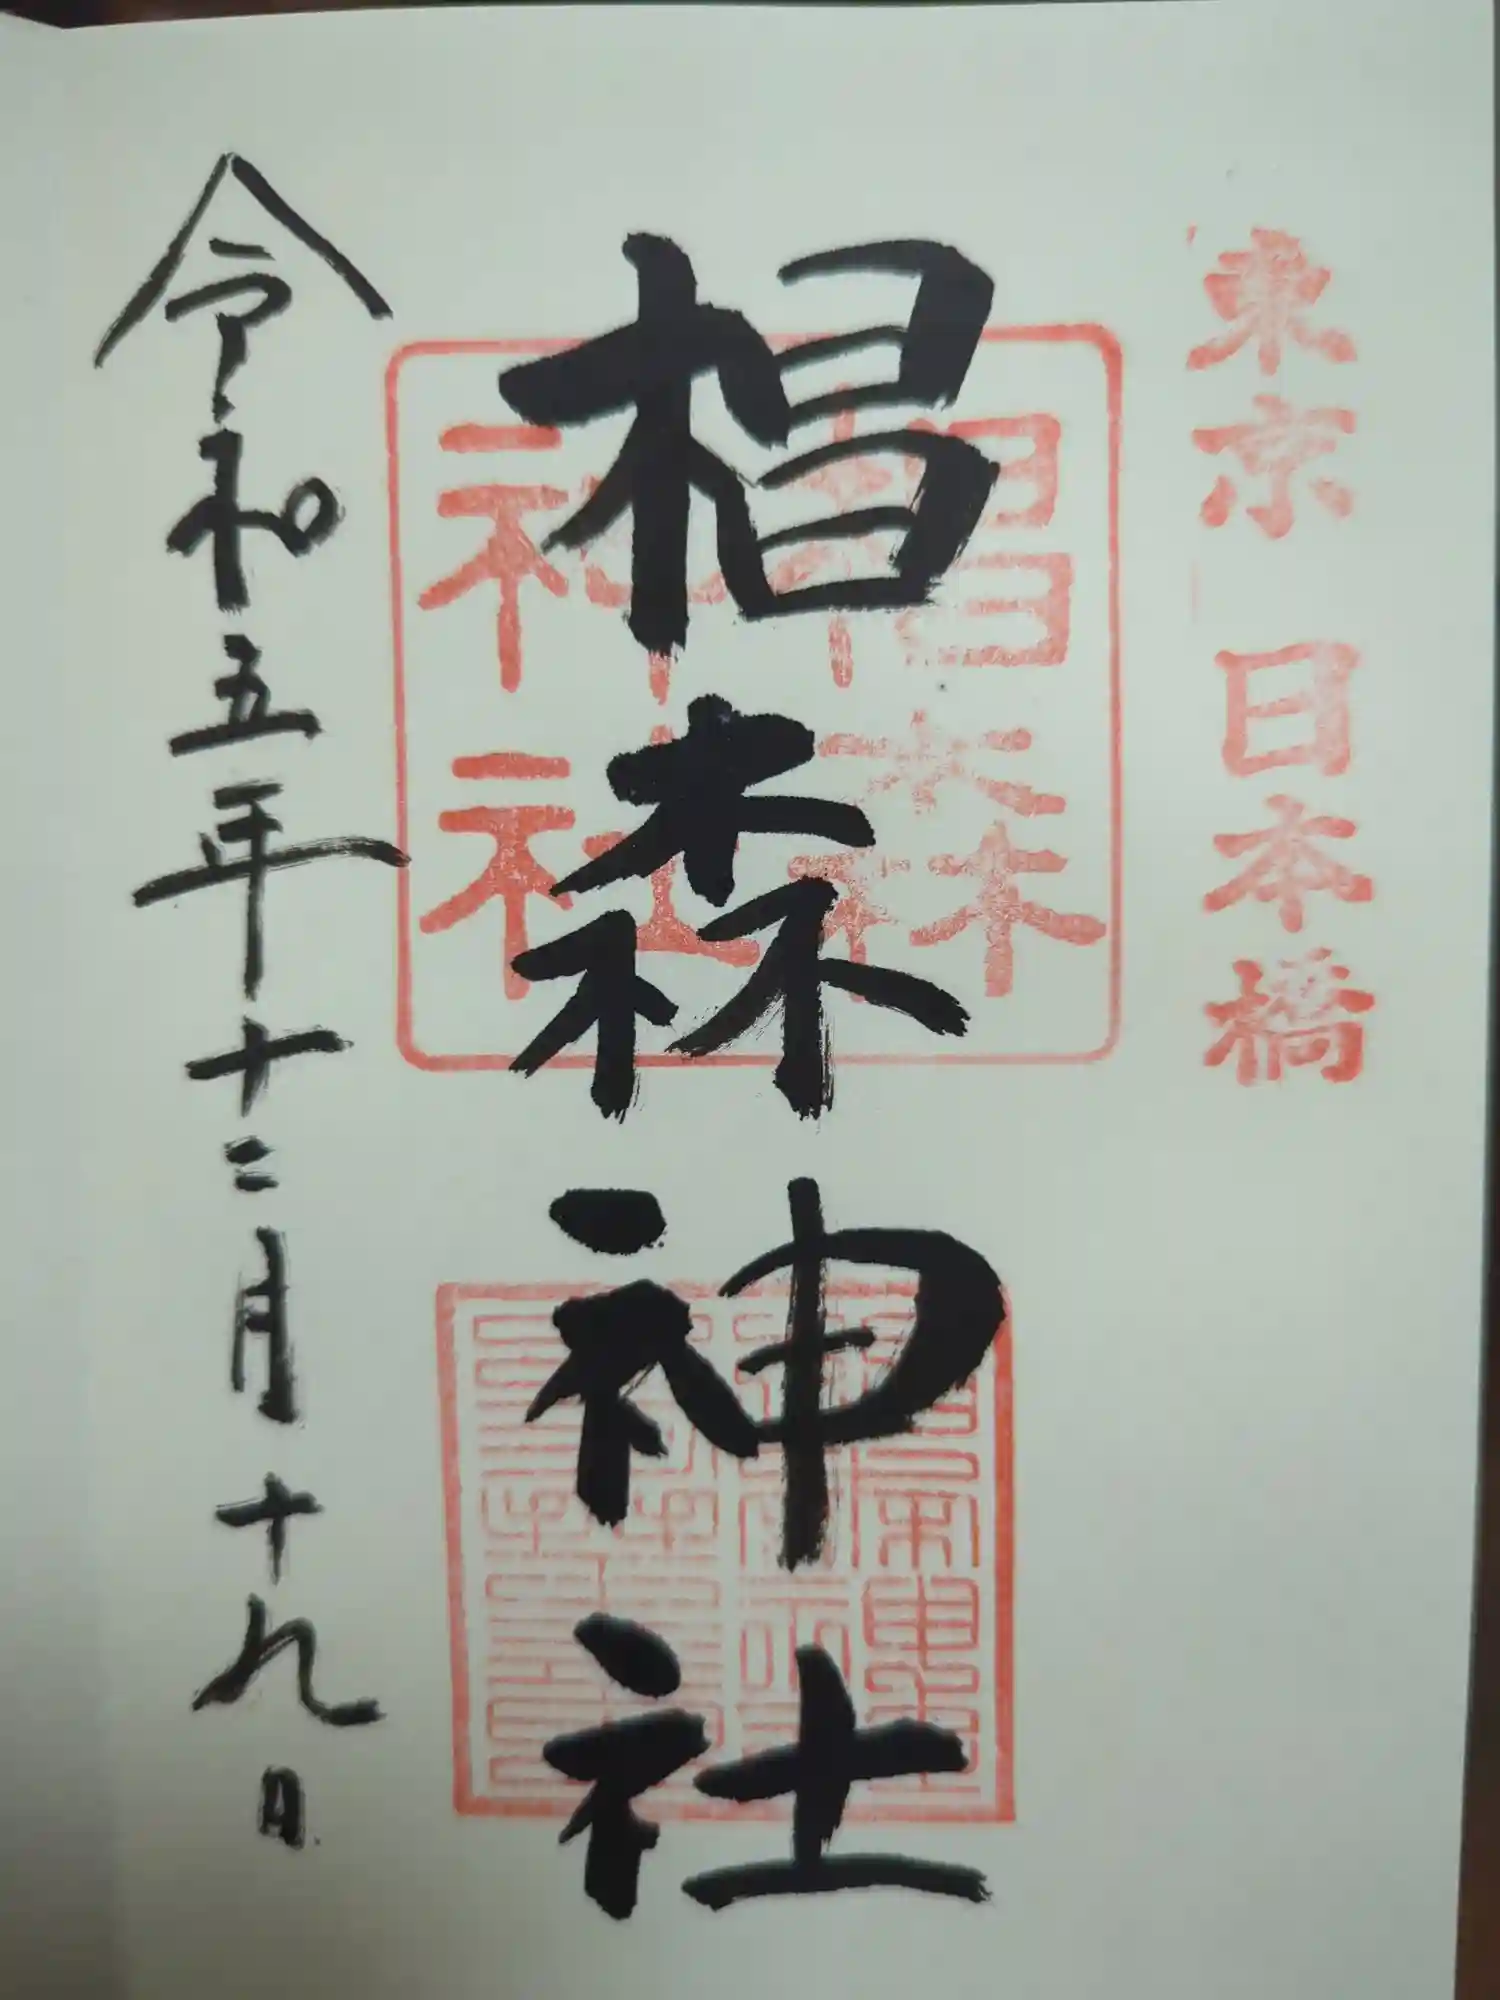 東京 日本橋
椙森神社
椙森
神社
令和五年十二月十九日